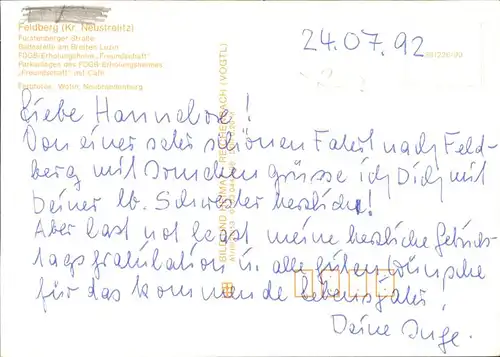 Feldberg (Kr. Neustrelitz)
Fürstenberger Straße
Badestelle am Breiten Luzin
FDGB-Erholungsheim „Freundschaft"
Parkanlagen des FDGB-Erholungsheimes
„Freundschaft" mit Café
24.07.92
Liebe Hannelore!
Von einer sehr schönen Fahrt nach Feld-
berg mit grüsse ich Dich mit
Deiner lb. Schwester herzlichst!
Aber last not least meine herzliche Geburts-
tagsgratulation u. alle guten Wünsche
für das kommende Lebensjahr,
Deine Inge.
BILD UND HEIMAT REICHENBACH (VOGTL)